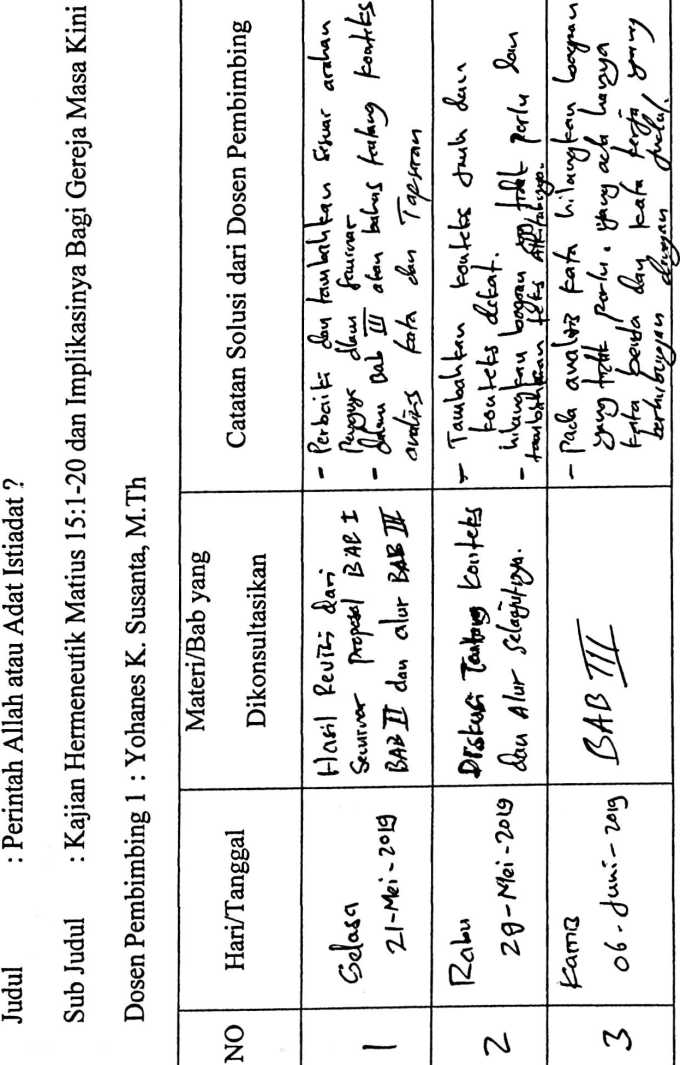 Judul : Perintah Allah atau Adat Istiadat ?
Sub Judul : Kajian Hermeneutik Matius 15:1-20 dan Implikasinya Bagi Gereja Masa Kini
Dosen Pembimbing 1 : Yohanes K. Susanta, M.Th
NO
Hari/Tanggal
Materi/Bab yang
Dikonsultasikan
Catatan Solusi dari Dosen Pembimbing
1
Selasa
21-Mei-2019
Hasil Revisi dari
Seminar Proposal BAB I
BAB II dan alur BAB III
- Perbaiki dan tambahkan sesuai arahan
Penguji dlam seminar
- dalam Bab III akan bahas tentang konteks
analisis kata dan Tafsiran
2
Rabu
29-Mei-2019
Diskusi Tentang konteks
dan Alur selanjutnya.
- Tambahkan konteks jauh dan
konteks dekat.
- hilangkan bagian yg tidak perlu dan
tambahkan teks Alkitabnya.
3
Kamis
06-Juni-2019
BAB III
- Pada analisis kata hilangkan bagian
yang tidak perlu. yang ada hanya
kata benda dan kata kerja yang
berhubungan dengan judul.